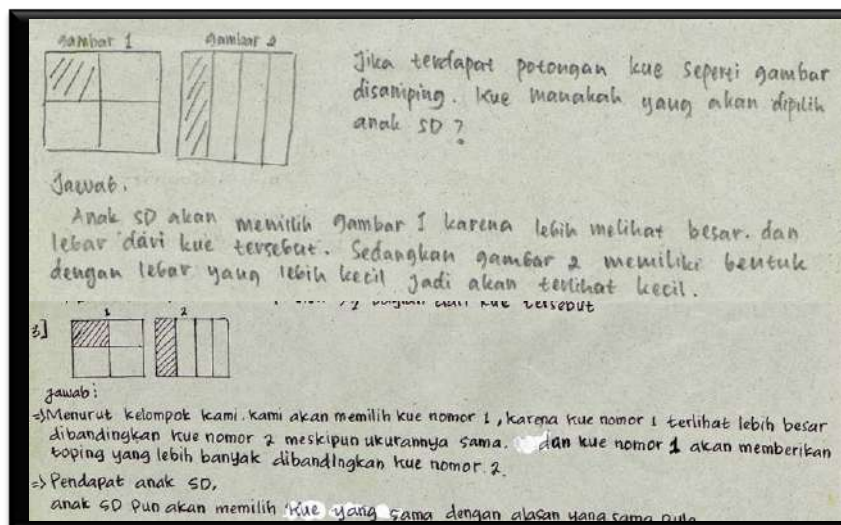 gambar 1
gambar 2
Jika terdapat potongan kue seperti gambar
disamping. Kue manakah yang akan dipilih
anak SD?
Jawab.
Anak SD akan memilih gambar 1 karena lebih melihat besar. dan
lebar dari kue tersebut. Sedangkan gambar 2 memiliki bentuk
dengan lebar yang lebih kecil jadi akan terlihat kecil.
dari kue tersebut
3]
1
2
jawab:
=> Menurut kelompok kami. kami akan memilih kue nomor 1, karena kue nomor 1 terlihat lebih besar
dibandingkan kue nomor 2 meskipun ukurannya sama. dan kue nomor 1 akan memberikan
toping yang lebih banyak dibandingkan kue nomor 2.
=> Pendapat anak SD,
anak SD pun akan memilih kue yang sama dengan alasan yang sama pula